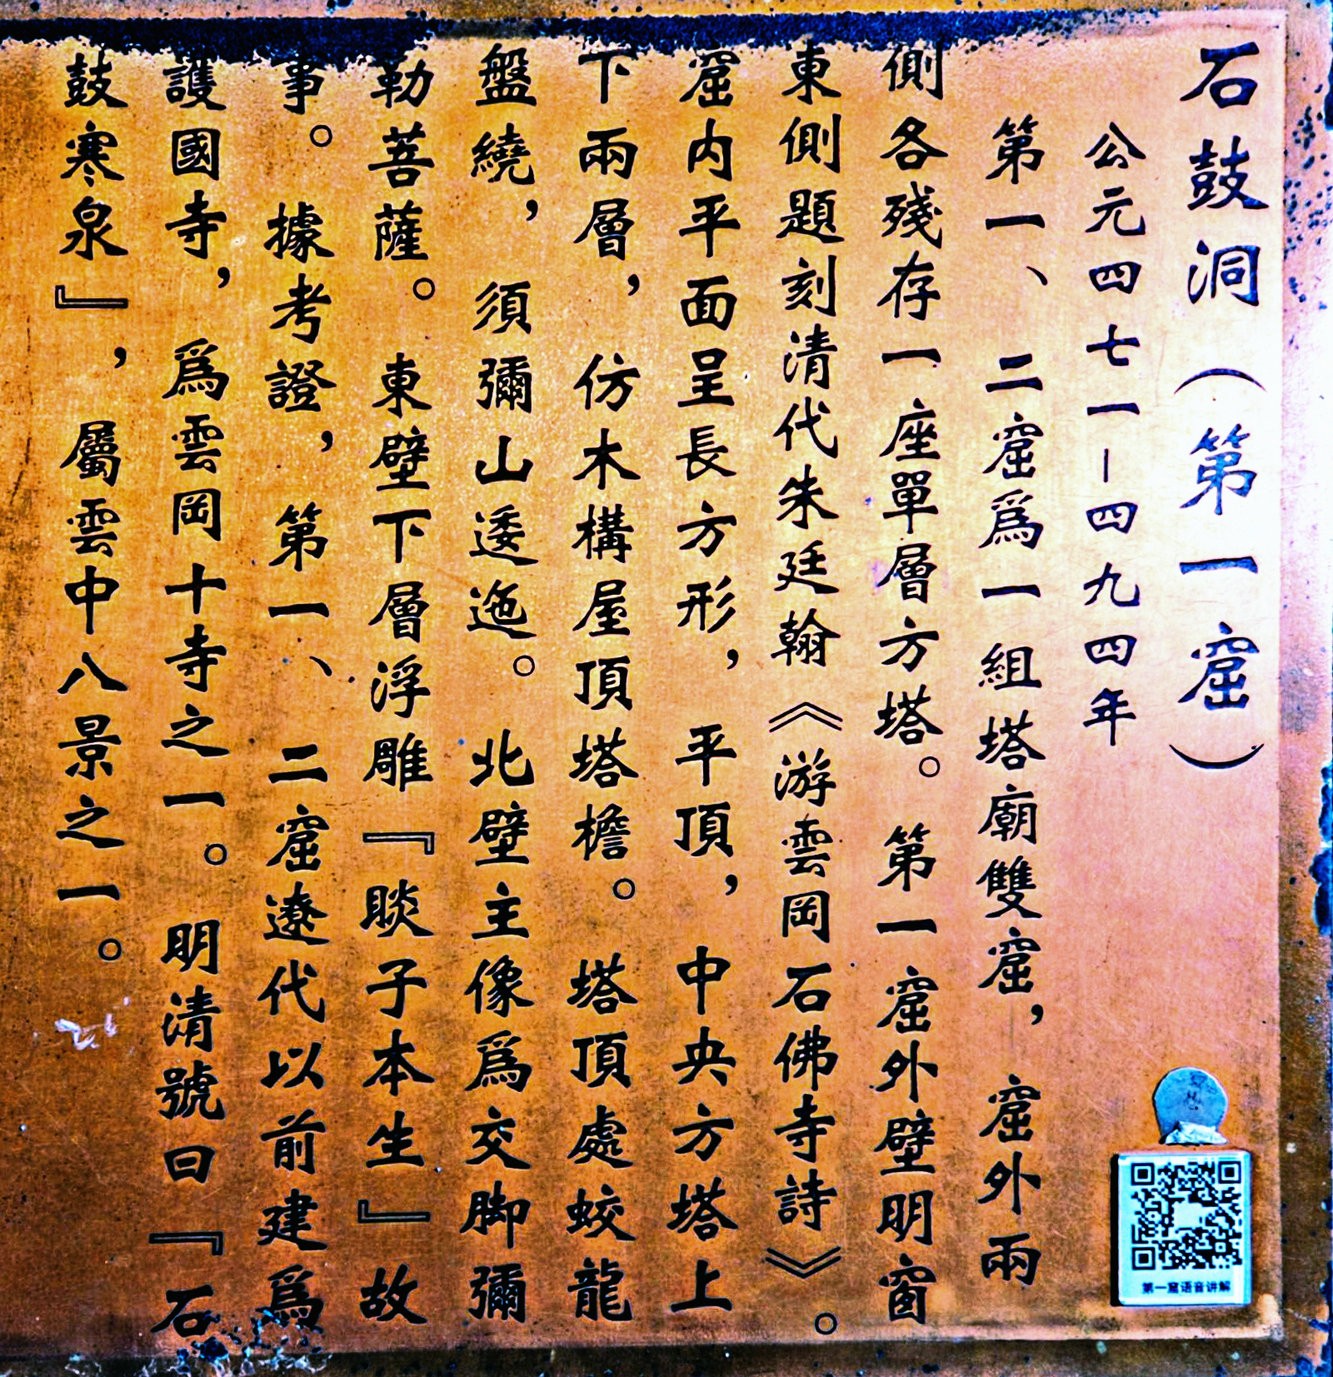 石鼓洞（第一窟）
公元四七一－四九四年
第一、二窟爲一組塔廟雙窟，窟外兩
側各殘存一座單層方塔。第一窟外壁明窗
東側題刻清代朱廷翰《游雲岡石佛寺詩》。
窟内平面呈長方形，平頂，中央方塔上
下兩層，仿木構屋頂塔檐。塔頂處蛟龍
盤繞，須彌山逶迤。北壁主像爲交脚彌
勒菩薩。東壁下層浮雕『睒子本生』故
事。據考證，第一、二窟遼代以前建爲
護國寺，爲雲岡十寺之一。明清號曰『石
鼓寒泉』，屬雲中八景之一。
第一窟语音讲解